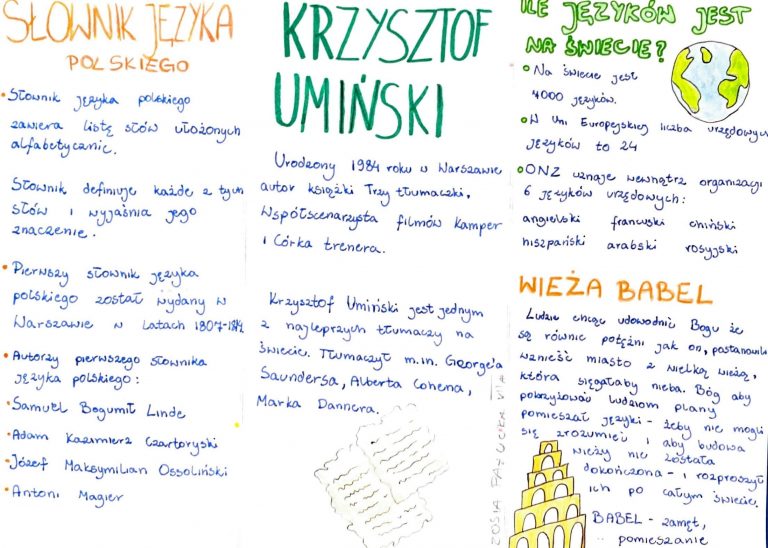 SŁOWNIK JĘZYKA
POLSKIEGO
• Słownik języka polskiego
zawiera listę słów ułożonych
alfabetycznie.
Słownik definiuje każde z tych
słów i wyjaśnia jego
znaczenie.
• Pierwszy słownik języka
polskiego został wydany w
Warszawie w latach 1807-1814
• Autorzy pierwszego słownika
języka polskiego:
• Samuel Bogumił Linde
• Adam Kazimierz Czartoryski
• Józef Maksymilian Ossoliński
• Antoni Magier
KRZYSZTOF
UMIŃSKI
Urodzony 1984 roku w Warszawie
autor książki Trzy tłumaczki.
Współscenarzysta filmów Kamper
i Córka trenera.
Krzysztof Umiński jest jednym
z najleprzych tłumaczy na
świecie. Tłumaczył m.in. George'a
Saundersa, Alberta Cohena,
Marka Dannera.
ZOSIA
ILE JĘZYKÓW JEST
NA ŚWIECIE?
• Na świecie jest
7000 języków.
• W Uni Europejskiej liczba urzędowych
języków to 24
• ONZ uznaje wewnątrz organizacji
6 języków urzędowych:
angielski francuski chiński
hiszpański arabski rosyjski
WIEŻA BABEL
Ludzie chcąc udowodnić Bogu że
są równie potężni jak on, postanowili
wznieść miasto z wielką wieżą,
która sięgałaby nieba. Bóg aby
pokrzyżować ludziom plany
pomieszał języki - żeby nie mogli
się zrozumieć i aby budowa
wieży nie została
dokończona - i rozproszył
ich po całym świecie.
BABEL - zamęt,
pomieszanie